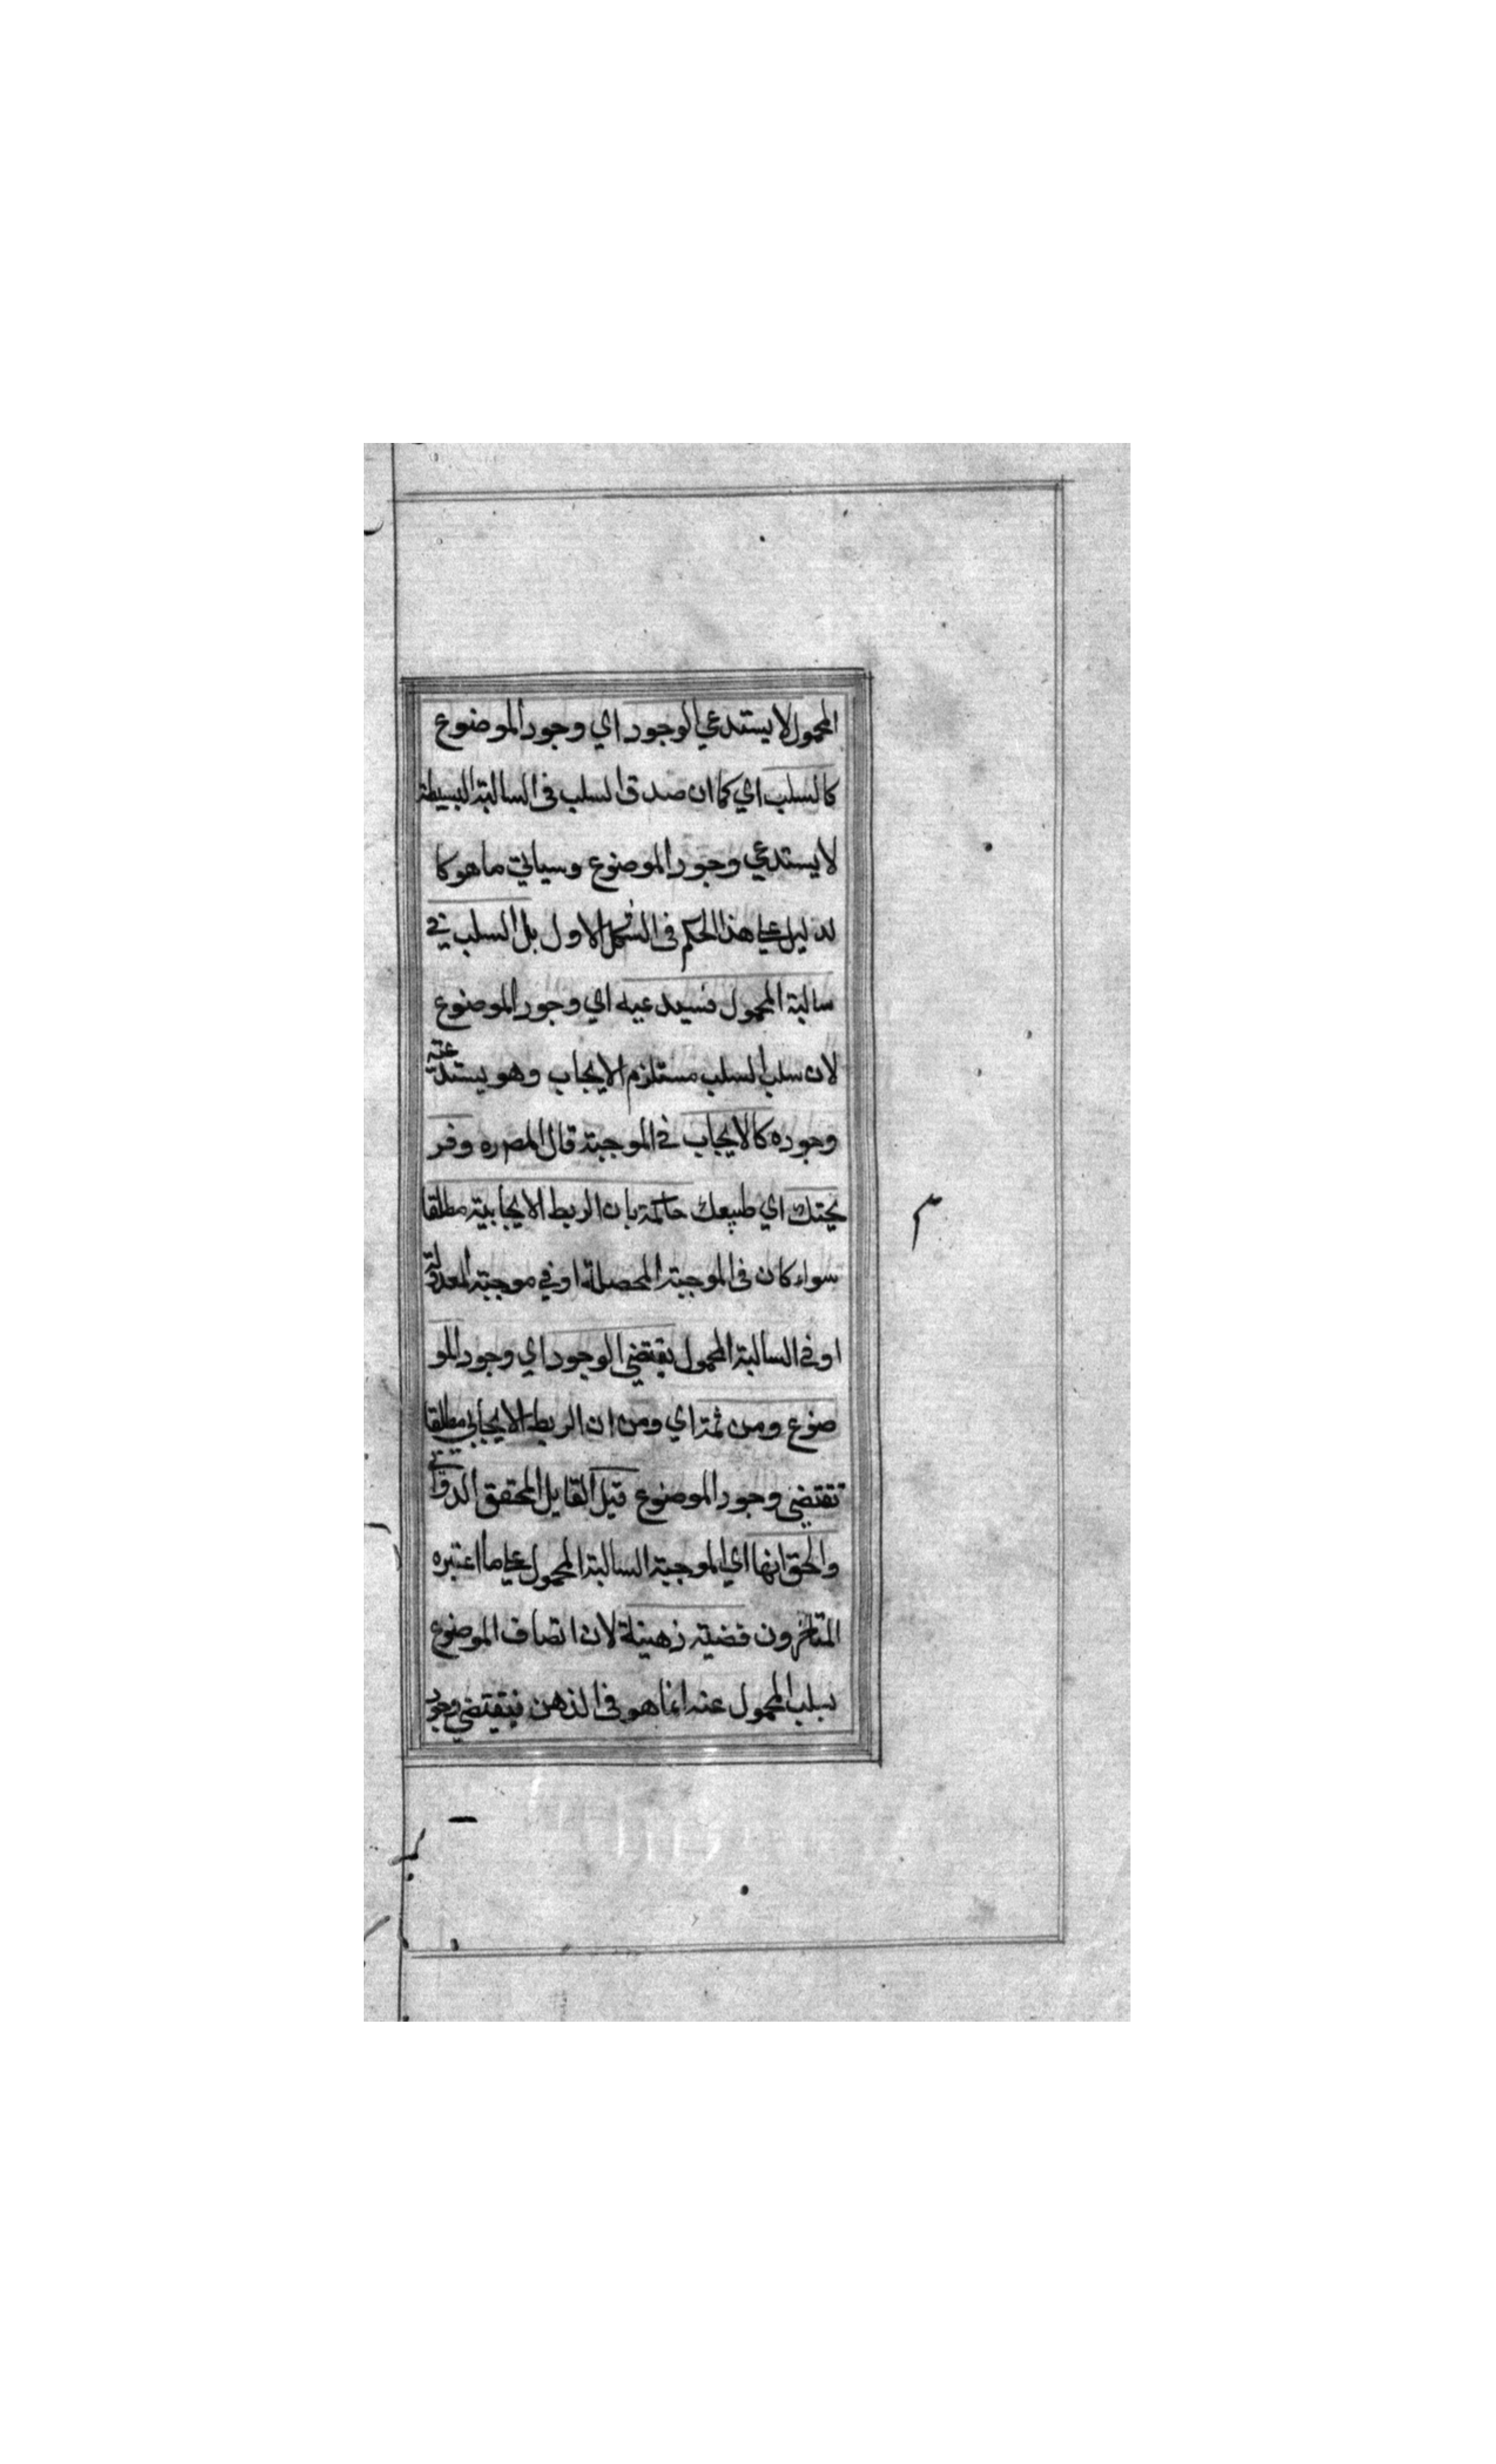 المحمول لا يستدعي الوجود اي وجود الموضوع
كالسلب اي كما ان صدق السلب في السالبة البسيطة
لا يستدعي وجود الموضوع وسياتي ما هو كا
لدليل علي هذا الحكم في الشكل الاول بل السلب في
سالبة المحمول فسيدعيه اي وجود الموضوع
لان سلب السلب مستلزم الايجاب وهو يستدعيه
وجوده كالايجاب في الموجبة قال المصره وقر
يحتك اي طبيعك حاكمة بان الربط الايجابية مطلقا
سواء كان في الموجبة المحصلة او في موجبة المعدولة
او في السالبة المحمول يقتضي الوجود اي وجود المو
ضوع ومن ثمة اي ومن ان الربط الايجابي مطلقا
تقتضي وجود الموضوع قيل القايل المحقق الدواني
والحق انها اي الموجبة السالبة المحمول علي ما اعتبره
المتاخرون قضية زهينة لان اتصاف الموضوع
بسلب المحمول عنه انما هو في الذهن فيقتضي وجود